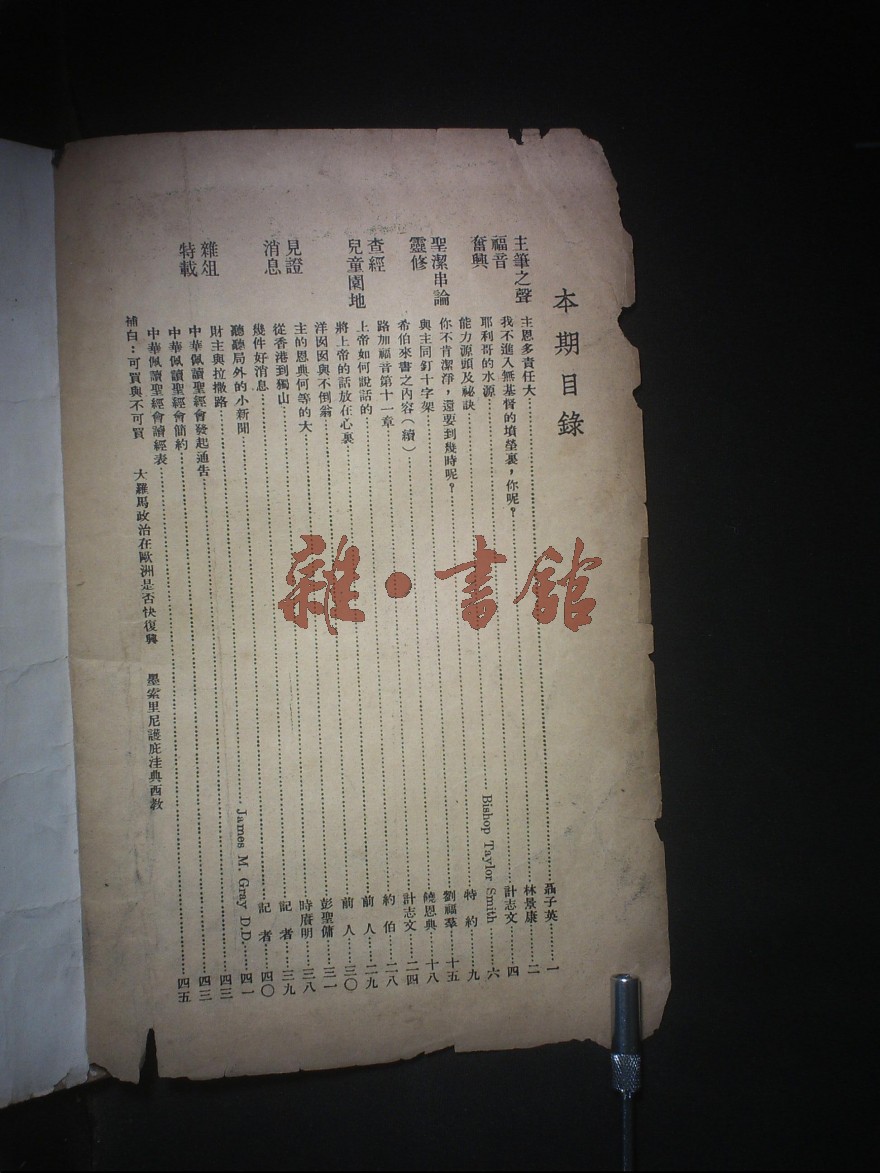 本期目錄
主筆之聲 主恩多責任大……聶子英……一
福音 我不進入無基督的墳塋裏,你呢?……林景康……二
奮興 耶利哥的水源……計志文……四
能力源頭及祕訣……Bishop Taylor Smith……六
聖潔串論 你不肯潔淨,還要到幾時呢?……特約……九
靈修 與主同釘十字架……劉福羣……十五
希伯來書之內容(續)……饒恩典……十八
查經 路加福音第十一章……計志文……二四
兒童園地 上帝如何說話的……約伯……二八
將上帝的話放在心裏……前人……二九
洋囡囡與不倒翁……前人……三〇
見證 主的恩典何等的大……彭聖傭……三一
消息 從香港到獨山……時賡明……三八
幾件好消息……記者……三九
聽聽局外的小新聞……記者……四〇
雜俎 財主與拉撒路……James M. Gray D.D.……四一
特載 中華佩讀聖經會發起通告……四三
中華佩讀聖經會簡約……四三
中華佩讀聖經會讀經表……四五
補白:可買與不可買 大羅馬政治在歐洲是否快復興 墨索里尼護庇洼典西教
雜·書館